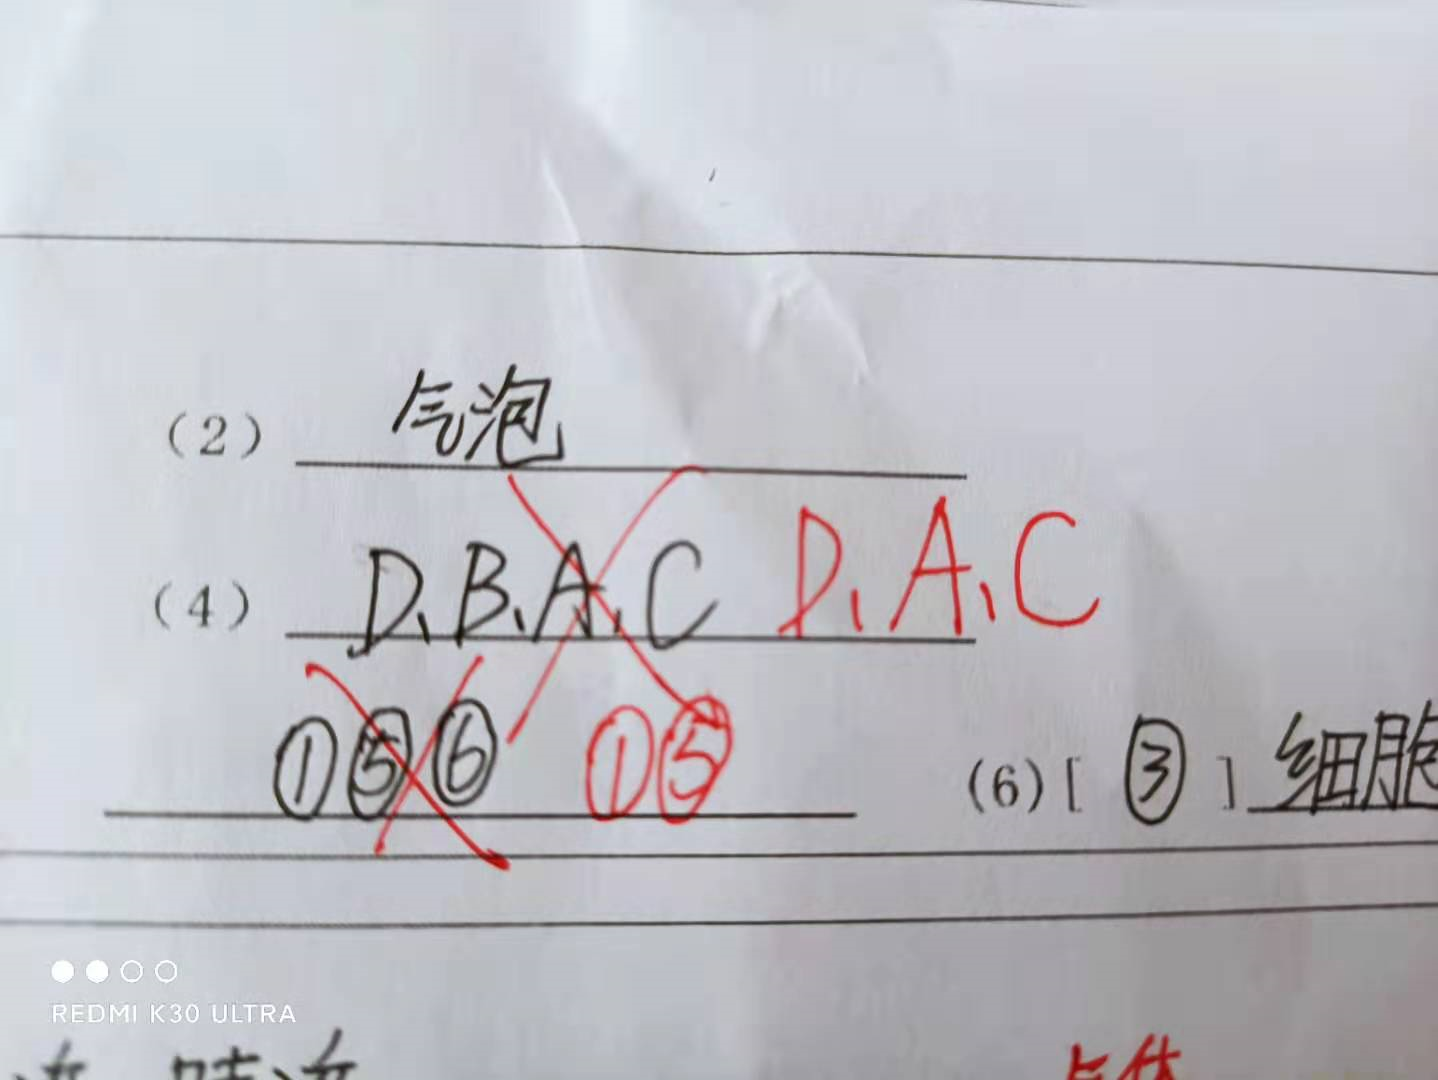 (2) 气泡
(4) D、B、A、C D、A、C
①⑤⑥ ①⑤ (6)[ ③ ] 细胞
REDMI K30 ULTRA